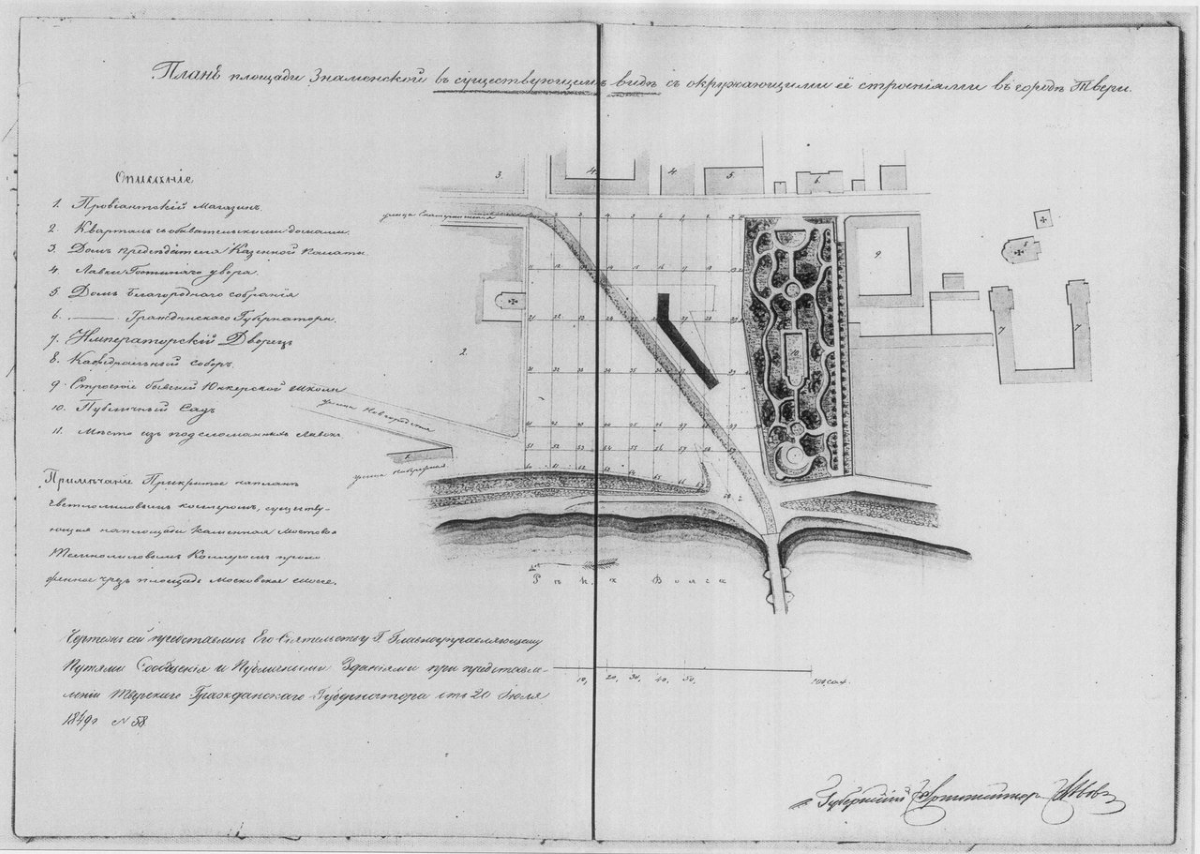 Планъ площади Знаменской въ существующемъ видѣ съ окружающими её строеніями въ городѣ Твери.
Описаніе
1. Провіантскій Магазинъ.
2 Кварталъ съ обывательскими домами.
3 Домъ предсѣдателя Казенной Палаты
4 Лавки Гостинаго двора.
5 Домъ благороднаго собранія
6. ——— Гражданскаго Губернатора.
7. Императорскій Дворецъ
8. Кафедральный соборъ.
9. Строеніе бывшей Юнкерской школы
10. Публичный Садъ
11. Мѣсто изъ подъ сломанныхъ Лавокъ
Примѣчаніе Прикрытое на планѣ
свѣтлолиловымъ колеромъ, существу-
ющая на площади каменная мостовая
Темнолиловымъ Колеромъ
чрезъ площадь Московское шоссе.
Чертежъ сей представленъ Его Сіятельству Г. Главноуправляющему
Путями Сообщенія и Публичными Зданіями при представ-
леніи Тверскаго Гражданскаго Губернатора отъ 20 Іюля
1849 г N 58
улица Екатерининская
улица Новгородская
улица Набережная
3.
4.
4
5
6
9
8
7
7
2.
10
Рѣка Волга
10, 20, 30, 40, 50, 100 саж.
Губернскій Архитекторъ Львовъ